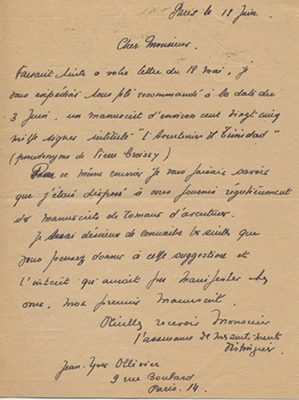 Paris le 18 Juin.
Cher Monsieur.
Faisant suite a votre lettre du 18 mai, je
vous expédiais sous pli recommandé à la date du
3 Juin, un manuscrit d'environ cent vingt cinq
mille signes intitulé "L'Aventurier de Trinidad"
(pseudonyme de Pierre Croissy)
Par ce même courrier je vous faisais savoir
que j'étais disposé à vous fournir régulièrement
des manuscrits de romans d'aventures.
Je serai désireux de connaitre la suite que
vous pensez donner à cette suggestion et
l'intérêt qu'aurait pu manifester chez
vous, mon premier manuscrit.
Veuillez recevoir Monsieur
l'assurance de mes sentiments
distingués
Jean-Yves Ollivier
9 rue Boulard
Paris. 14.